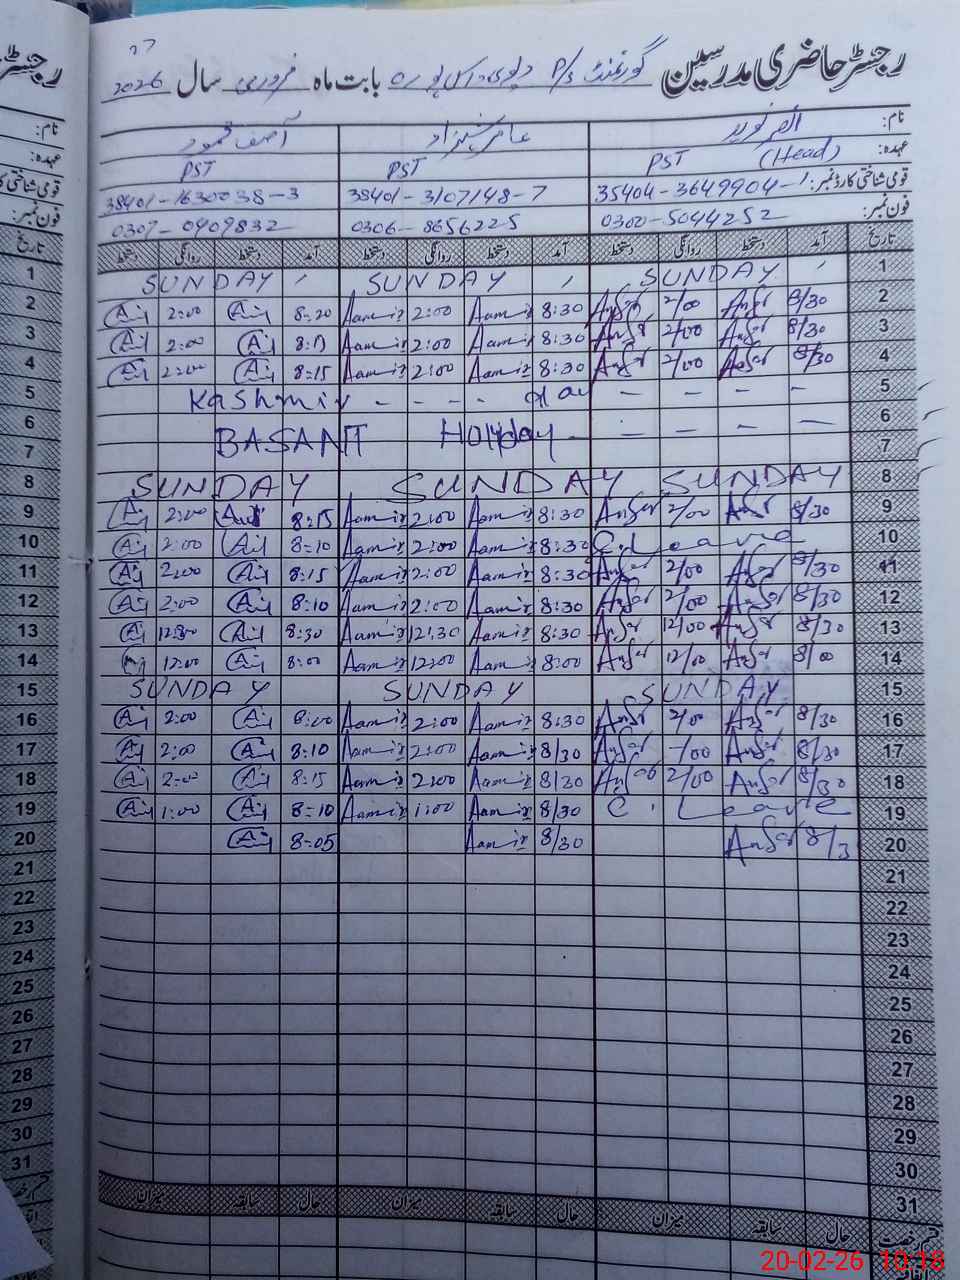 رجسٹر حاضری مدرسین گورنمنٹ P/S بابت ماہ فروری سال 2026
نام: عامر شہزاد آصف محمود
عہدہ: PST (Head) PST PST
قومی شناختی کارڈ نمبر: 35404-3649904-1 38401-3107148-7 38401-1630038-3
فون نمبر: 0300-5044252 0306-8656225 0307-0909832
تاریخ آمد دستخط روانگی دستخط آمد دستخط روانگی دستخط آمد دستخط روانگی دستخط تاریخ
1 SUNDAY SUNDAY SUNDAY 1
2 2:00 8:20 Aamir 2:00 Aamir 8:30 Ansar 2/00 Ansar 8/30 2
3 2:00 Aamir 2:00 Aamir 8:30 Ansar 2/00 Ansar 8/30 3
4 2:00 8:15 Aamir 2:00 Aamir 8:30 Ansar 2/00 Ansar 8/30 4
5 Kashmir - - - - day - - - - 5
6 BASANT Holiday - - - - - 6
7 7
8 SUNDAY SUNDAY SUNDAY 8
9 2:00 8:15 Aamir 2:00 Aamir 8:30 Ansar 2/00 Ansar 8/30 9
10 2:00 8-10 Aamir 2:00 Aamir 8:30 C. Leave 10
11 2:00 8:15 Aamir 2:00 Aamir 8:30 Ansar 2/00 Ansar 8/30 11
12 2:00 8:10 Aamir 2:00 Aamir 8:30 Ansar 2/00 Ansar 8/30 12
13 12:30 8:30 Aamir 12:30 Aamir 8:30 Ansar 12/00 Ansar 8/30 13
14 12:00 8:00 Aamir 12:00 Aamir 8:00 Ansar 12/00 Ansar 8/00 14
15 SUNDAY SUNDAY SUNDAY 15
16 2:00 Aamir 2:00 Aamir 8:30 Ansar 2/00 Ansar 8/30 16
17 2:00 8:10 Aamir 2:00 Aamir 8/30 Ansar /00 Ansar 8/30 17
18 2:00 8:15 Aamir 2:00 Aamir 8/30 Ansar 2/00 Ansar 8/30 18
19 1:00 8-10 Aamir 1:00 Aamir 8/30 C. Leave 19
20 8:05 Aamir 8/30 Ansar 8/3 20
21 21
22 22
23 23
24 24
25 25
26 26
27 27
28 28
29 29
30 30
31 31
حال سابقہ میزان حال سابقہ میزان حال سابقہ میزان
20-02-26 10:18